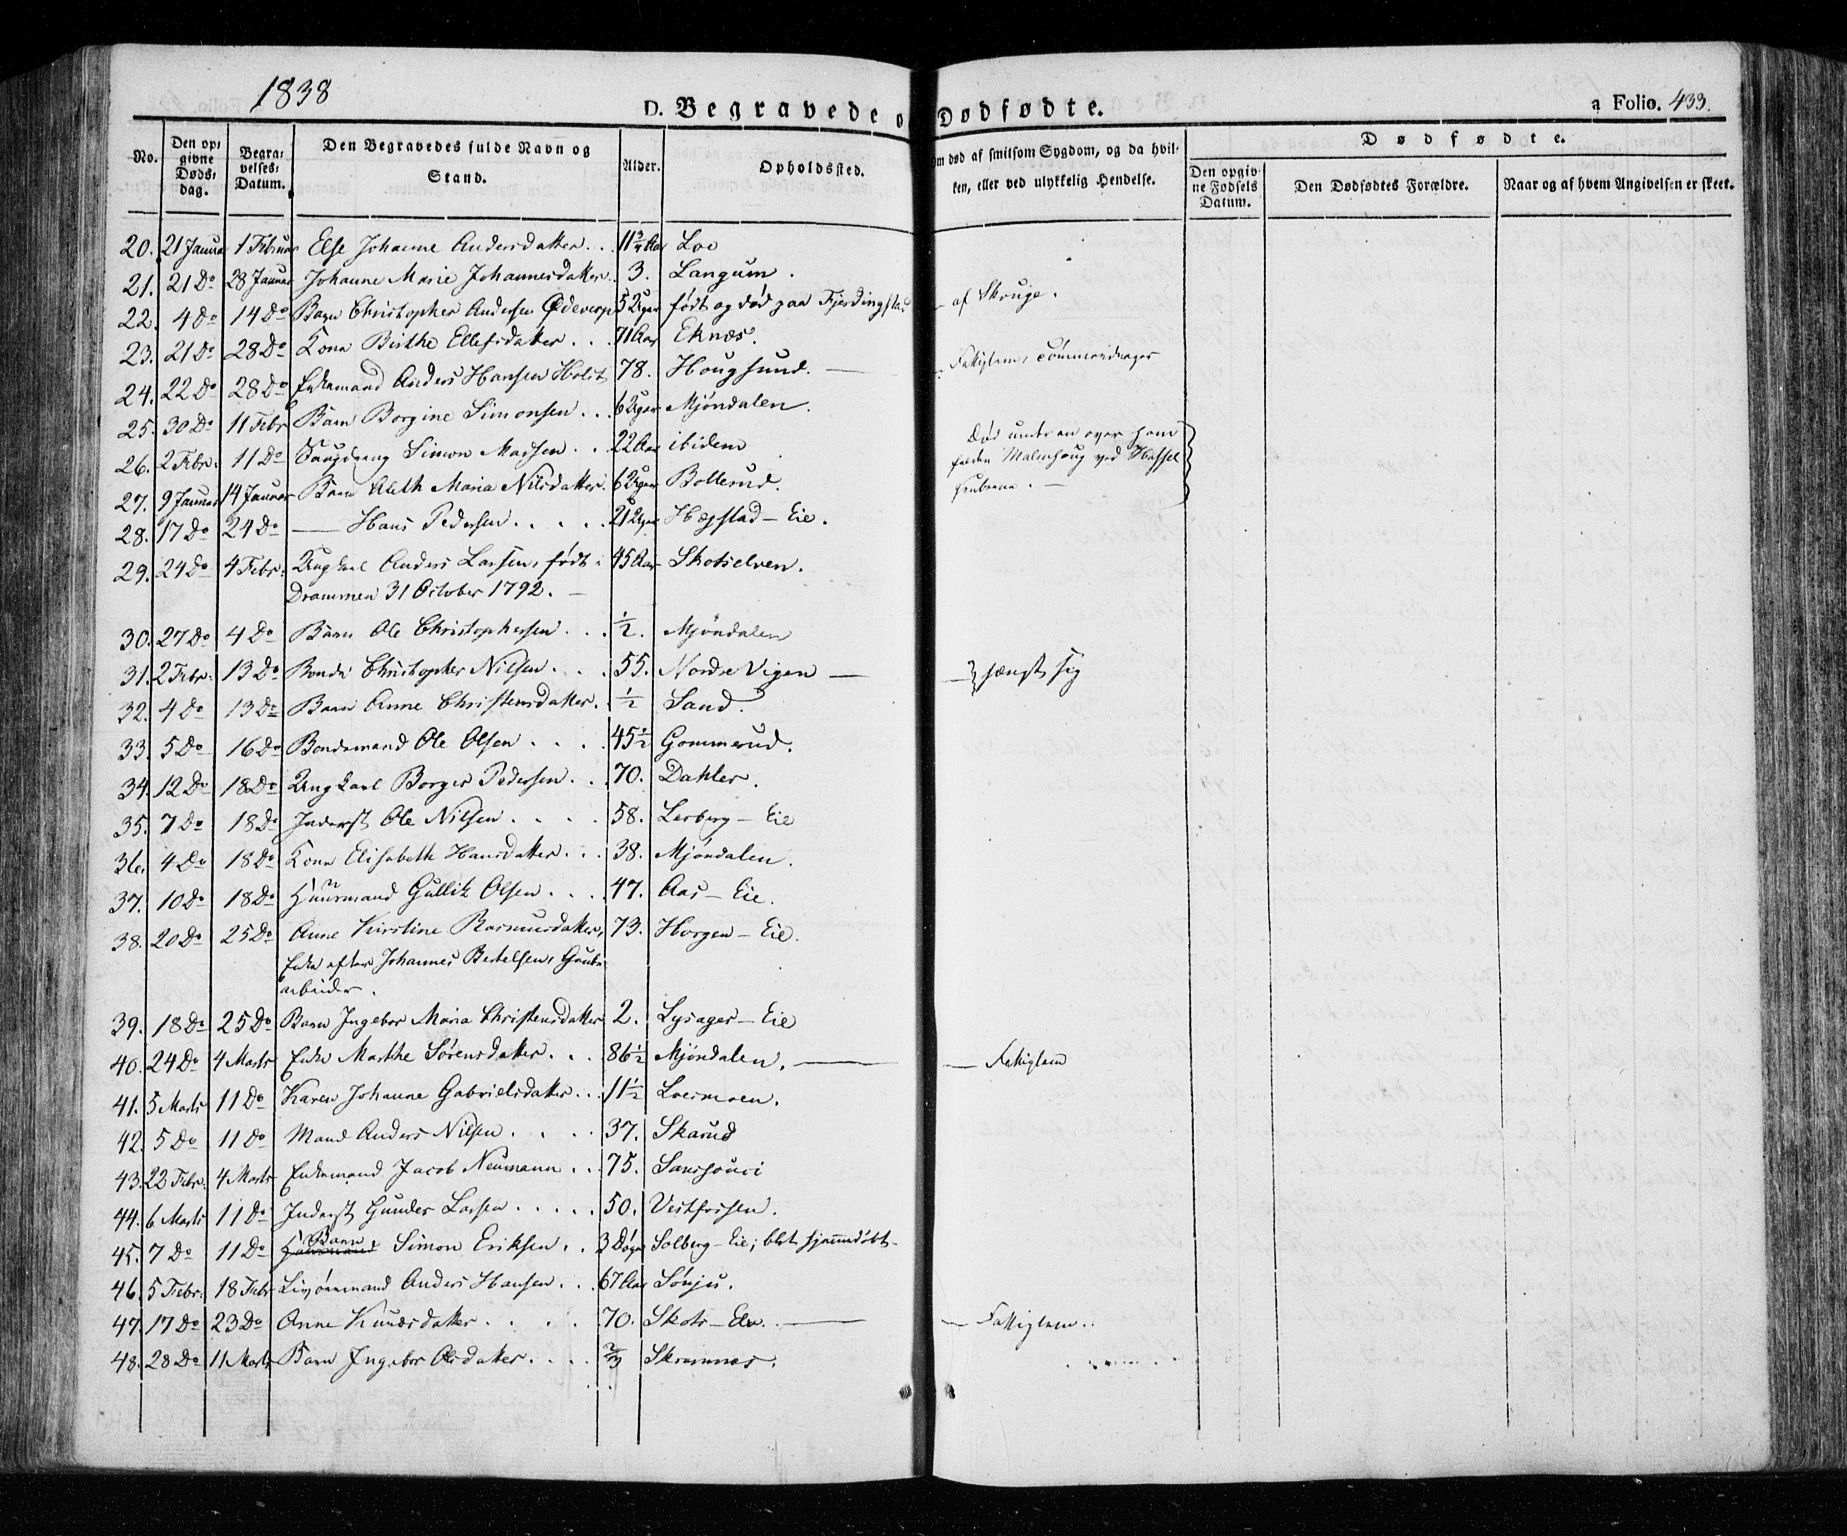 1838
D. Begravede o Dødfødte.
a Folio. 433.
No.
Den op-
givne
Døds-
dag.
Begra-
velses-
Datum.
Den Begravedes fulde Navn og
Stand.
Alder.
Opholdssted.
Om død af smitsom Sygdom, og da hvil-
ken, eller ved ulykkelig Hendelse.
Dødfødte.
Den opgiv-
ne Fødsels
Datum.
Den Dødfødtes Forældre.
Naar og af hvem Angivelsen er skeet.
20. 21 Januar 1 Februar Else Johanne Andersdatter . . 11 3/4 Aar Loe
21. 21 Do 28 Januar Johanne Marie Johannesdatter 3. Langum.
22. 4 Do 14 Do Barn Christopher Andersen Ødeverp 5 Uger født og død paa Fjerdingstad — af Skruge.
23. 21 Do 28 Do Kone Birthe Ellefsdatter . . . 71 Aar Eknæs.
24. 22 Do 28 Do Enkemand Anders Hansen Holst 78. Hougsund. — Fattiglem, Tømmerdrager
25. 30 Do 11 Febr Barn Borgine Simonsen . . 6 Uger Mjøndalen.
26. 2 Febr. 11 Do Simon Madsen . . 22 Aar ibidem
Død under en over ham
falden Malmhaug ved Hassel
Gruberne. —
27. 9 Januar 14 Januar Barn Aleth Maria Nilsdatter. 6 Uger Bollerud.
28. 17 Do 24 Do — Hans Pedersen . . . . . 21 Uger Hægstad - Eie.
29. 24 Do 4 Febr. Ungkarl Anders Larsen, født i 45 Aar Skotselven.
Drammen 31 October 1792. —
30. 27 Do 4 Do Barn Ole Christophersen . . . 1/2. Mjöndalen
31. 2 Febr. 13 Do Bonde Christopher Nilsen . . . 55. Nordre Vigen — — hængt sig
32. 4 Do 13 Do Barn Anne Christensdatter. 1/2 Sand.
33. 5 Do 16 Do Bondemand Ole Olsen . . . . 45 1/2 Gommerud.
34. 12 Do 18 Do Ungkarl Borger Pedersen . . . 70. Dahler.
35. 7 Do 18 Do Inderst Ole Nilsen . . . . 58. Lerberg - Eie
36. 4 Do 18 Do Kone Elisabeth Hansdatter . . . 38. Mjøndalen.
37. 10 Do 18 Do Huusmand Gullik Olsen . . . 47. Aas - Eie.
38. 20 Do 25 Do Anne Kirstine Rasmusdatter, 73. Horgen - Eie.
Enke efter Johannes Bertelsen, Grube-
arbeider.
39. 18 Do 25 Do Barn Ingebor Maria Christensdatter 2. Lysager - Eie
40. 24 Do 4 Marts Enke Marthe Sørensdatter . . . 86 1/2 Mjøndalen. — — Fattiglem
41. 5 Marts 11 Do Karen Johanne Gabrielsdatter . . . 11 1/2 Loesmoen.
42. 5 Do 11 Do Mand Anders Nilsen . . . . 37. Skarud
43. 22 Febr. 4 Marts Enkemand Jacob Neumann . . 75. Sanssouci
44. 6 Marts 11 Do Inderst Gunder Larsen . . . . . 50. Vestfossen.
45. 7 Do 11 Do Barn Simon Eriksen . . 3 Døgn Solberg - Eie; blot hjemmedøbt -
46. 5 Febr. 18 Febr Anders Hansen . . . 67 Aar Sønju.
47. 17 Do 23 Do Anne Knudsdatter . . . . . 70. Skots - Elv. — — Fattiglem.
48. 28 Do 11 Marts Barn Ingebor Olsdatter . . . . 2/3 Skramnæs.